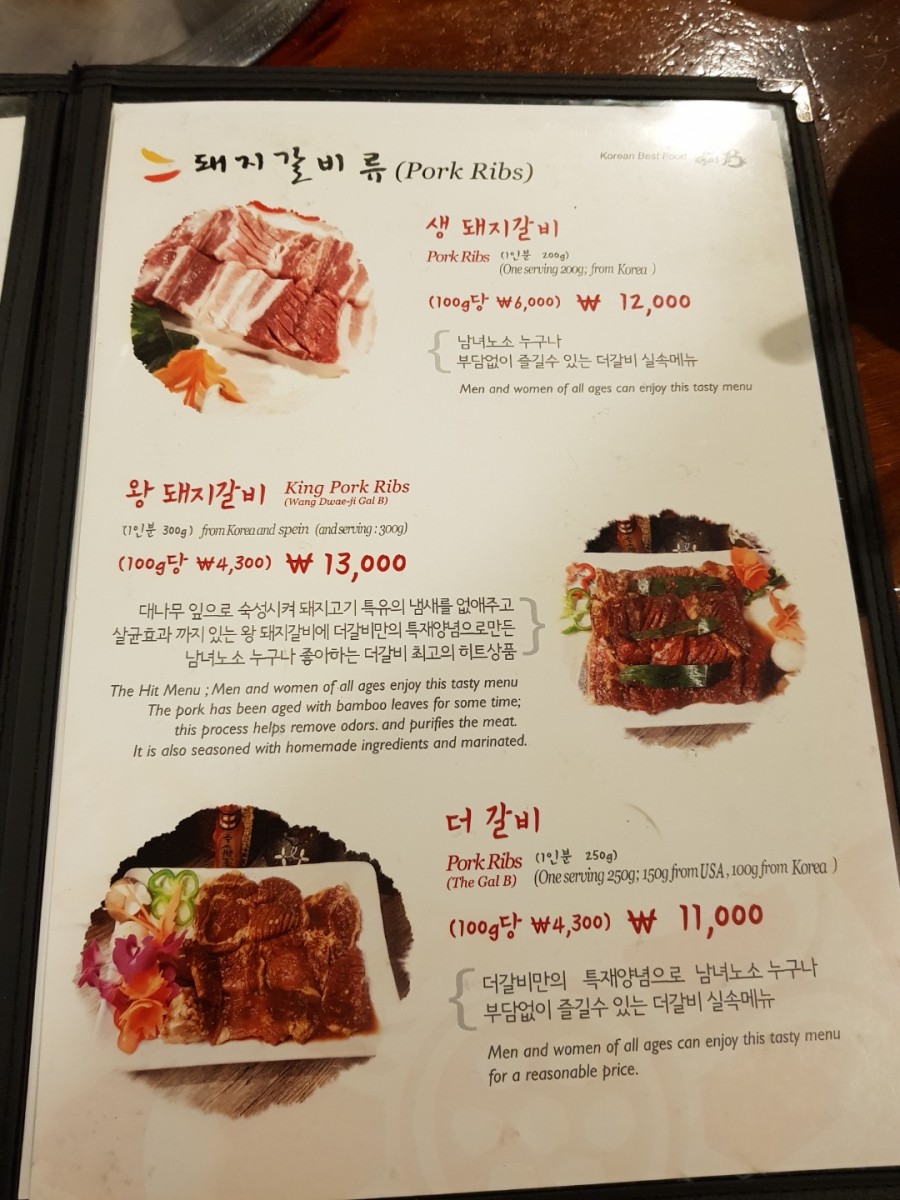 돼지갈비류 (Pork Ribs)
Korean Best Food
생 돼지갈비
Pork Ribs (1인분 200g)
(One serving 200g; from Korea )
(100g당 ₩6,000) ₩ 12,000
남녀노소 누구나
부담없이 즐길수 있는 더갈비 실속메뉴
Men and women of all ages can enjoy this tasty menu
왕 돼지갈비 King Pork Ribs
(Wang Dwae-ji Gal B)
(1인분 300g) from Korea and spein (and serving : 300g)
(100g당 ₩4,300) ₩ 13,000
대나무 잎으로 숙성시켜 돼지고기 특유의 냄새를 없애주고
살균효과 까지 있는 왕 돼지갈비에 더갈비만의 특재양념으로만든
남녀노소 누구나 좋아하는 더갈비 최고의 히트상품
The Hit Menu ; Men and women of all ages enjoy this tasty menu
The pork has been aged with bamboo leaves for some time;
this process helps remove odors. and purifies the meat.
It is also seasoned with homemade ingredients and marinated.
더 갈비
Pork Ribs (1인분 250g)
(The Gal B) (One serving 250g; 150g from USA, 100g from Korea )
(100g당 ₩4,300) ₩ 11,000
더갈비만의 특재양념으로 남녀노소 누구나
부담없이 즐길수 있는 더갈비 실속메뉴
Men and women of all ages can enjoy this tasty menu
for a reasonable price.